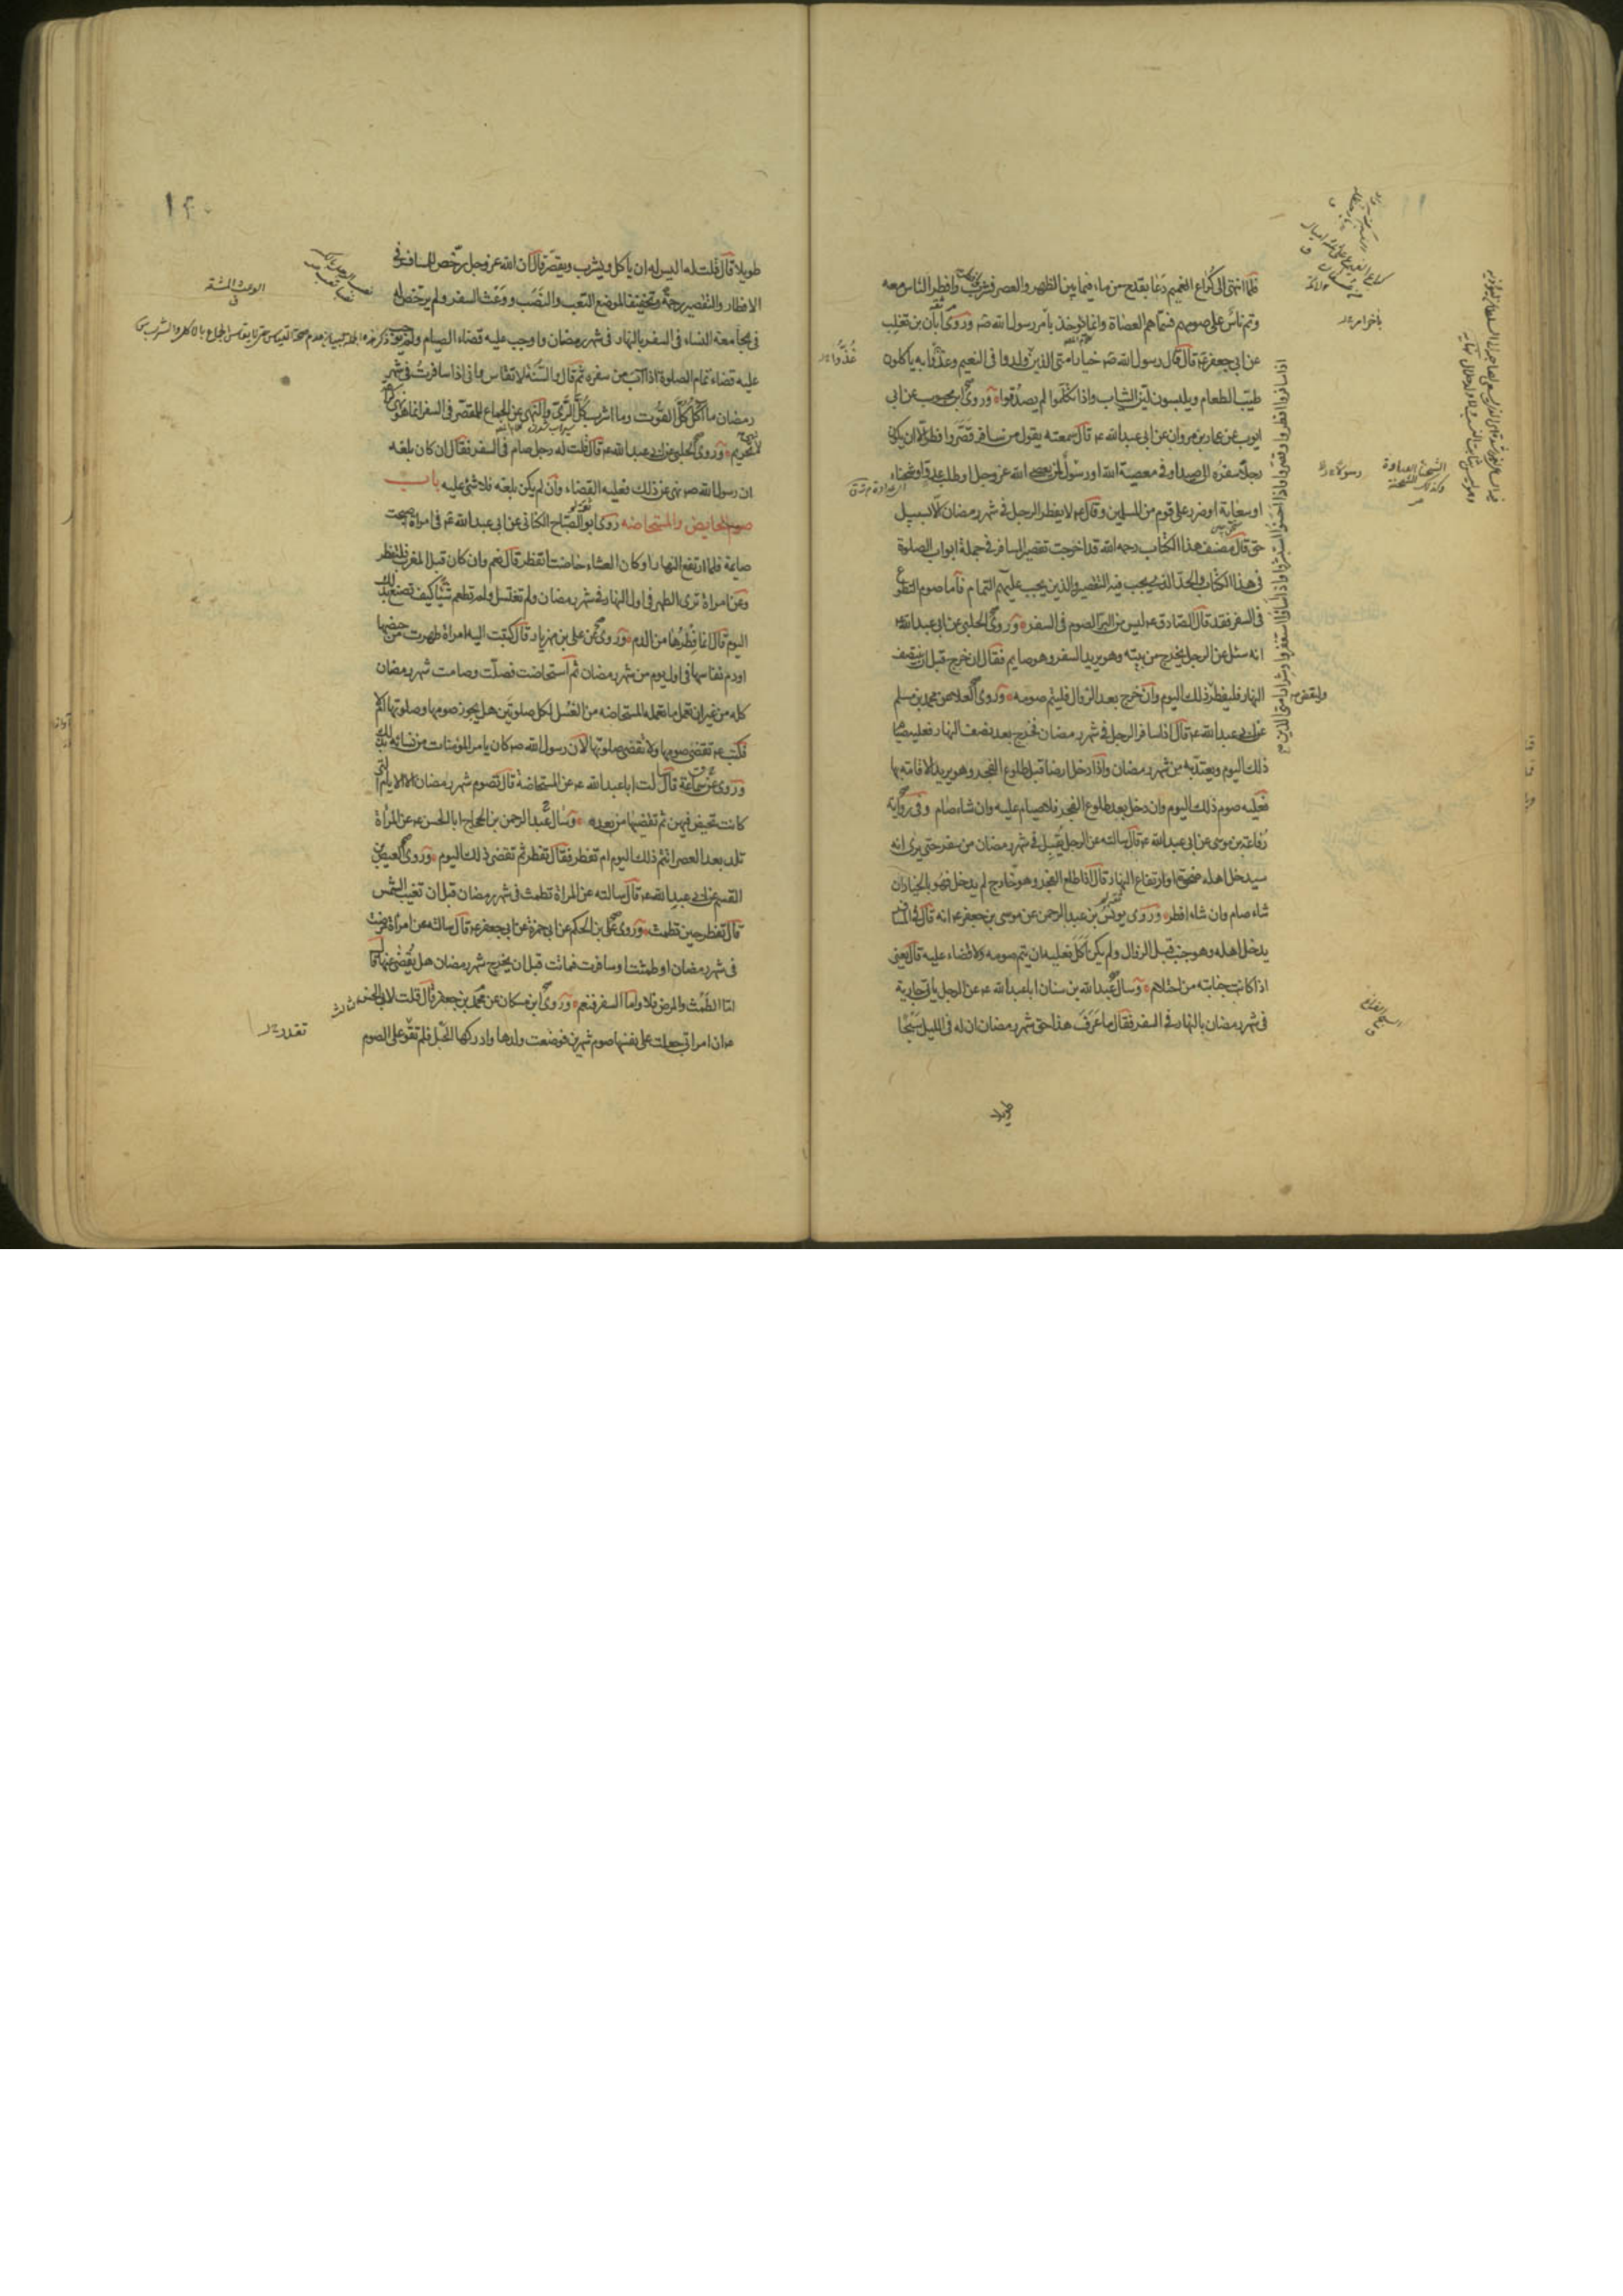 فلما انتهى الى كراع الغميم دعا بقدح من ماء فيما بين الظهر والعصر فشرب وافطر وافطر الناس معه
وتم ناس على صومهم فسماهم العصاة وانما يؤخذ بامر رسول الله صه وروى ابان بن تغلب
عن ابي جعفر ع قال قال رسول الله صه خيار امتى الذين ولدوا فى النعيم وغذوا به ياكلون
طيب الطعام ويلبسون لين الثياب واذا تكلموا لم يصدقوا وروى ابن محبوب عن ابى
ايوب عن عمار بن مروان عن ابى عبد الله ع قال سمعته يقول من سافر قصر وافطر الا ان يكون
رجلا سفره الى صيد او فى معصية الله او رسول لمن يعصى الله عز وجل او طلب عدو او شحناء
او سعاية او ضرر على قوم من المسلمين وقال ع لا يفطر الرجل فى شهر رمضان الا بسبيل
حق قال مصنف هذا الكتاب رحمه الله قد اخرجت تقصير المسافر فى جملة ابواب الصلوة
فى هذا الكتاب والحد الذى يجب فيه التقصير والذين يجب عليهم التمام فاما صوم التطوع
فى السفر فقد قال الصادق ع ليس من البر الصوم فى السفر وروى الحلبى عن ابى عبد الله ع
انه سئل عن الرجل يخرج من بيته وهو يريد السفر وهو صايم فقال ان خرج قبل ان ينتصف
النهار فليفطر وليقض ذلك اليوم وان خرج بعد الزوال فليتم صومه وروى العلا عن محمد بن مسلم
عن ابى عبد الله ع قال اذا سافر الرجل فى شهر رمضان فخرج بعد نصف النهار فعليه صيام
ذلك اليوم ويعتد به من شهر رمضان واذا دخل ارضا قبل طلوع الفجر وهو يريد الاقامة بها
فعليه صوم ذلك اليوم وان دخل بعد طلوع الفجر فلا صيام عليه وان شاء صام وفى رواية
رفاعة بن موسى عن ابى عبد الله ع قال سالته عن الرجل يقبل فى شهر رمضان من سفر حتى يرى انه
سيدخل اهله ضحوة او ارتفاع النهار قال اذا طلع الفجر وهو خارج لم يدخل فهو بالخيار ان
شاء صام وان شاء افطر وروى يونس بن عبد الرحمن عن موسى بن جعفر ع انه قال فى المسافر
يدخل اهله وهو جنب قبل الزوال ولم يكن اكل فعليه ان يتم صومه ولا قضاء عليه قال يعنى
اذا كانت جنابته من احتلام وسال عبد الله بن سنان ابا عبد الله ع عن الرجل ياتى جارية
فى شهر رمضان بالنهار فى السفر فقال ما عرف هذا حق شهر رمضان ان له فى الليل سبحا
اذا سافروا افطروا وقصروا واذا احسنوا استبشروا واذا اساؤا استغفروا وشرار امتى الذين
غذوا
رسولا
وليقض
١٢٠
طويلا قال قلت له اليس له ان ياكل ويشرب ويقصر قال ان الله عز وجل رخص للمسافر فى
الافطار والتقصير رحمة وتخفيفا لموضع التعب والنصب ووعث السفر ولم يرخص له
فى مجامعة النساء فى السفر بالنهار فى شهر رمضان واوجب عليه قضاء الصيام ولم يوجب
عليه قضاء تمام الصلوة اذا آب من سفره ثم قال والسنة لا تقاس وانى اذا سافرت فى شهر
رمضان ما آكل كل القوت وما اشرب كل الرى والنهى عن الجماع للمقصر فى السفر انما هو نهى كراهة
لا نهى تحريم وروى الحلبى عن ابى عبد الله ع قال قلت له رجل صام فى السفر فقال ان كان بلغه
ان رسول الله صه نهى عن ذلك فعليه القضاء وان لم يكن بلغه فلا شئ عليه باب
صوم الحايض والمستحاضه روى ابو الصباح الكنانى عن ابى عبد الله ع فى امراة اصبحت
صايمة فلما ارتفع النهار او كان العشاء حاضت اتفطر قال نعم وان كان قبل المغرب فلتفطر
وعن امراة ترى الطهر فى اول النهار فى شهر رمضان ولم تغتسل ولم تطعم شيئا كيف تصنع بذلك
اليوم قال انما فطرها من الدم وروى عن على بن مهزيار قال كتبت اليه امراة طهرت من حيضها
او دم نفاسها فى اول يوم من شهر رمضان ثم استحاضت فصلت وصامت شهر رمضان
كله من غير ان تعمل ما تعمله المستحاضه من الغسل لكل صلوتين هل يجوز صومها وصلوتها ام لا
فكتب ع تقضى صومها ولا تقضى صلوتها لان رسول الله صه كان يامر المؤمنات من نسائه بذلك
وروى عن سماعة قال سالت ابا عبد الله ع عن المستحاضة قال تصوم شهر رمضان الا الايام التى
كانت تحيض فيهن ثم تقضيها من بعده وسال عبد الرحمن بن الحجاج ابا الحسن ع عن المراة
تلد بعد العصر اتتم ذلك اليوم ام تفطر فقال تفطر ثم تقضى ذلك اليوم وروى العيص بن
القسم عن ابى عبد الله ع قال سالته عن المراة تطمث فى شهر رمضان قبل ان تغيب الشمس
قال تفطر حين تطمث وروى على بن الحكم عن ابى حمزة عن ابى جعفر ع قال سالته عن امراة مرضت
فى شهر رمضان او طمثت او سافرت فماتت قبل ان يخرج شهر رمضان هل يقضى عنها قال
اما الطمث والمرض فلا واما السفر فنعم وروى ابن مسكان عن محمد بن جعفر قال قلت لابى الحسن
ع ان امراتى جعلت على نفسها صوم شهرين فوضعت ولدها وادركها الحبل فلم تقو على الصوم